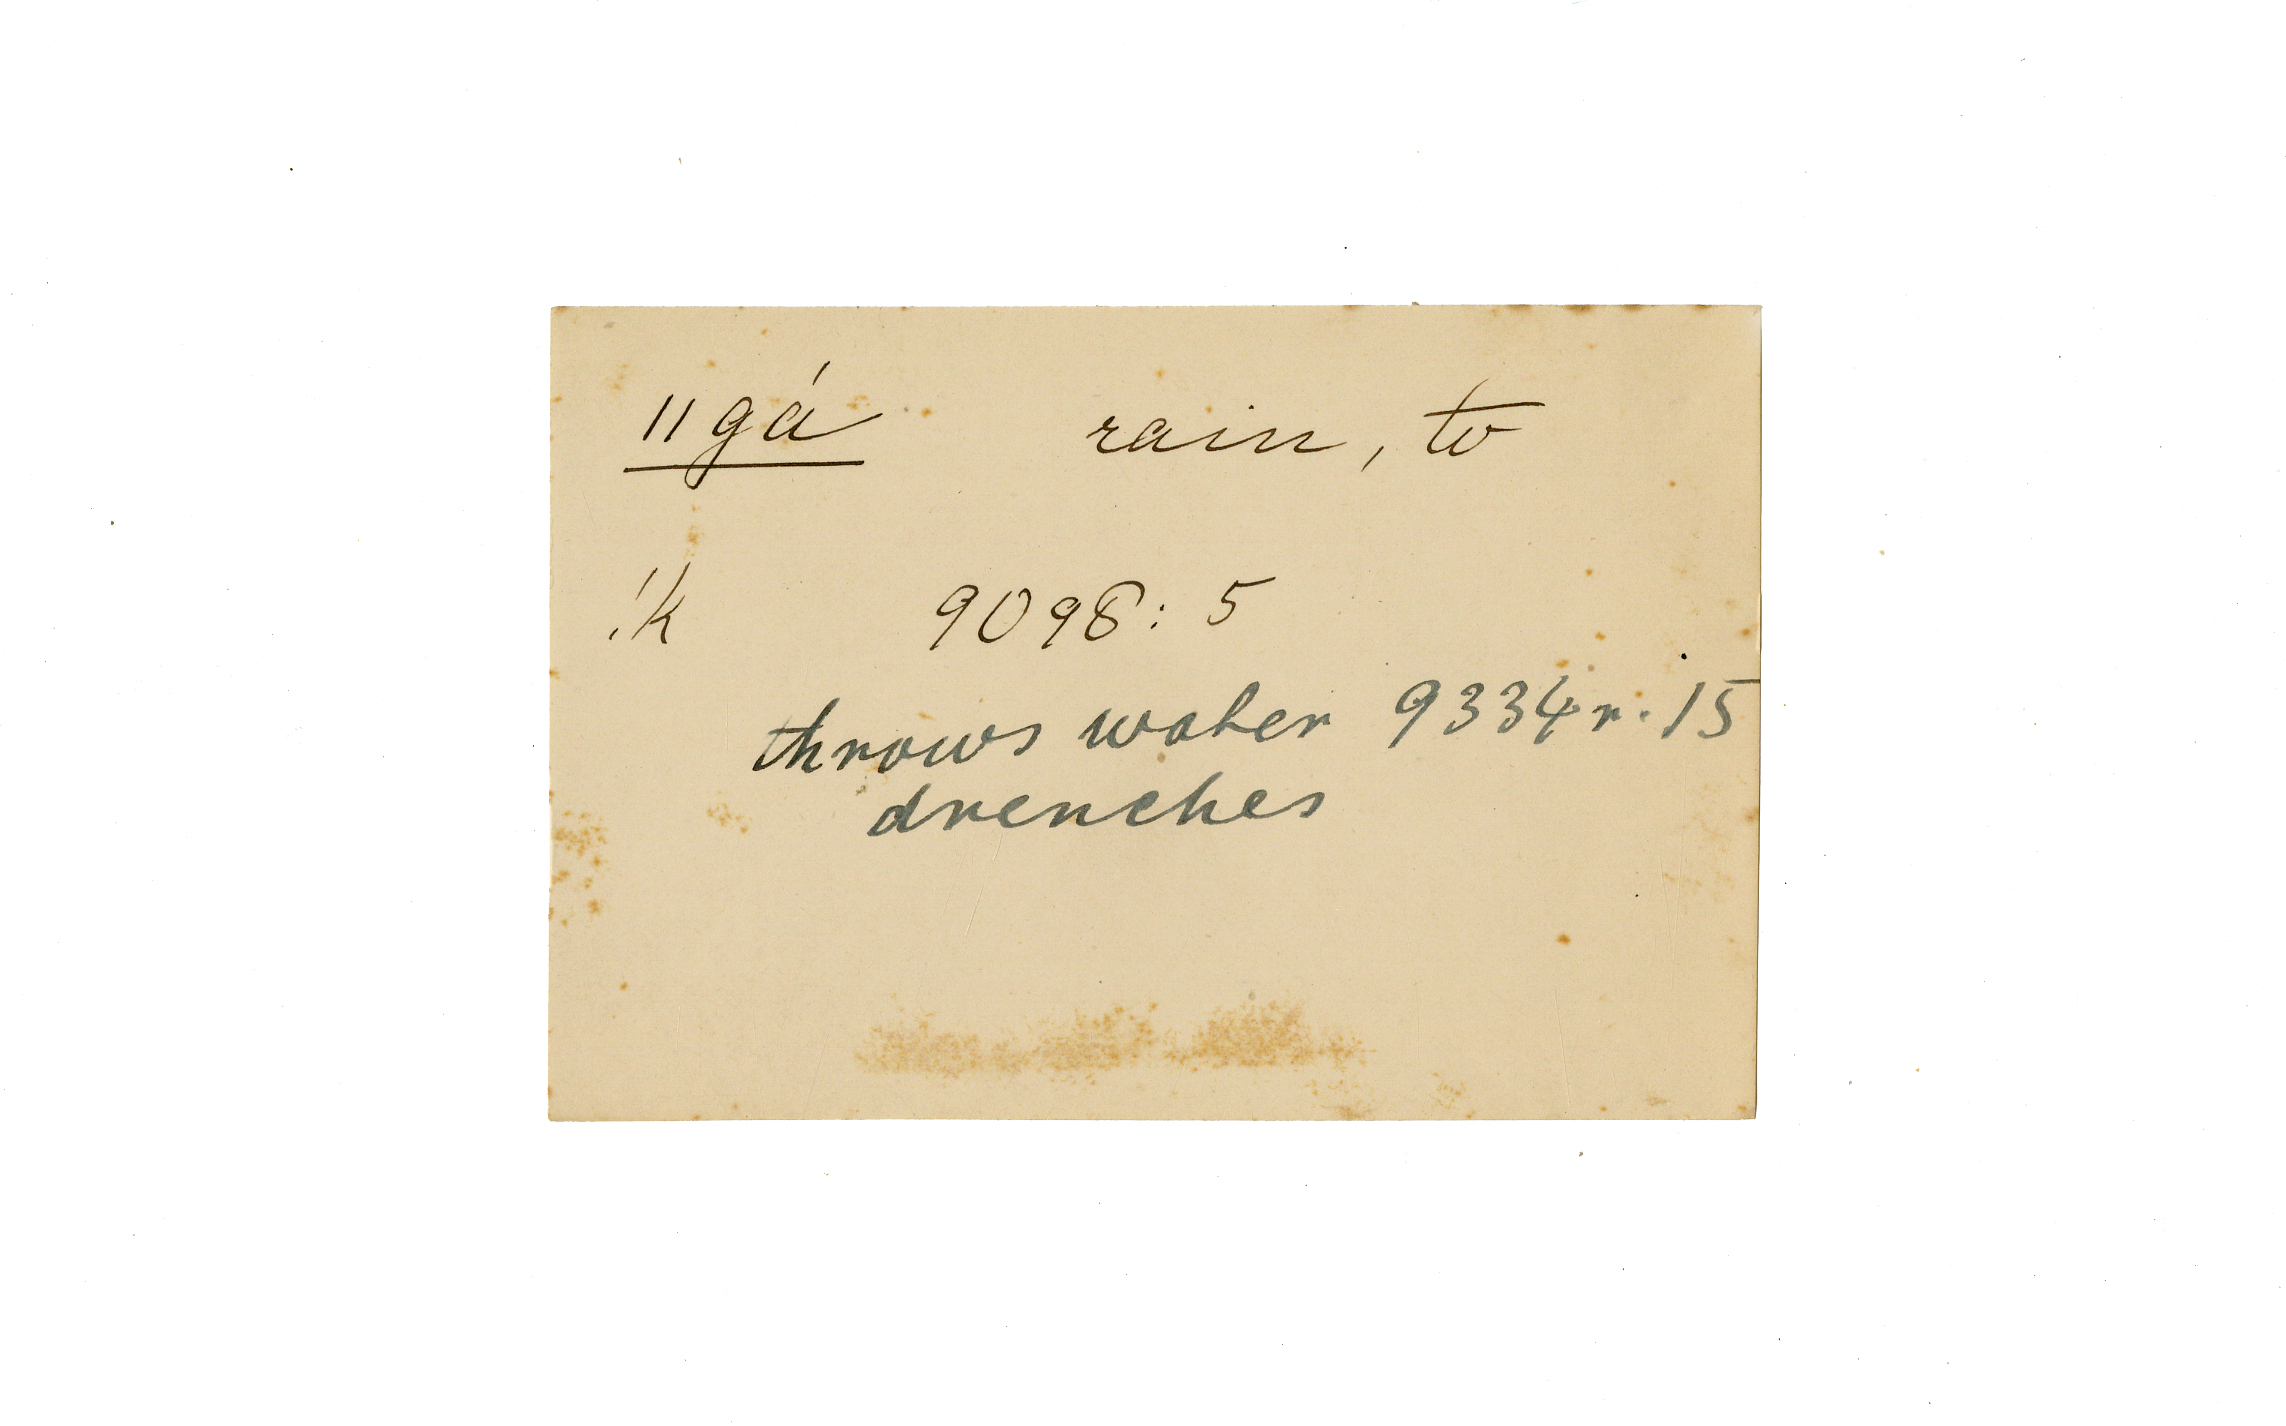 ǁgá rain, to
!k 9098: 5
throws water 9334r. 15
drenches